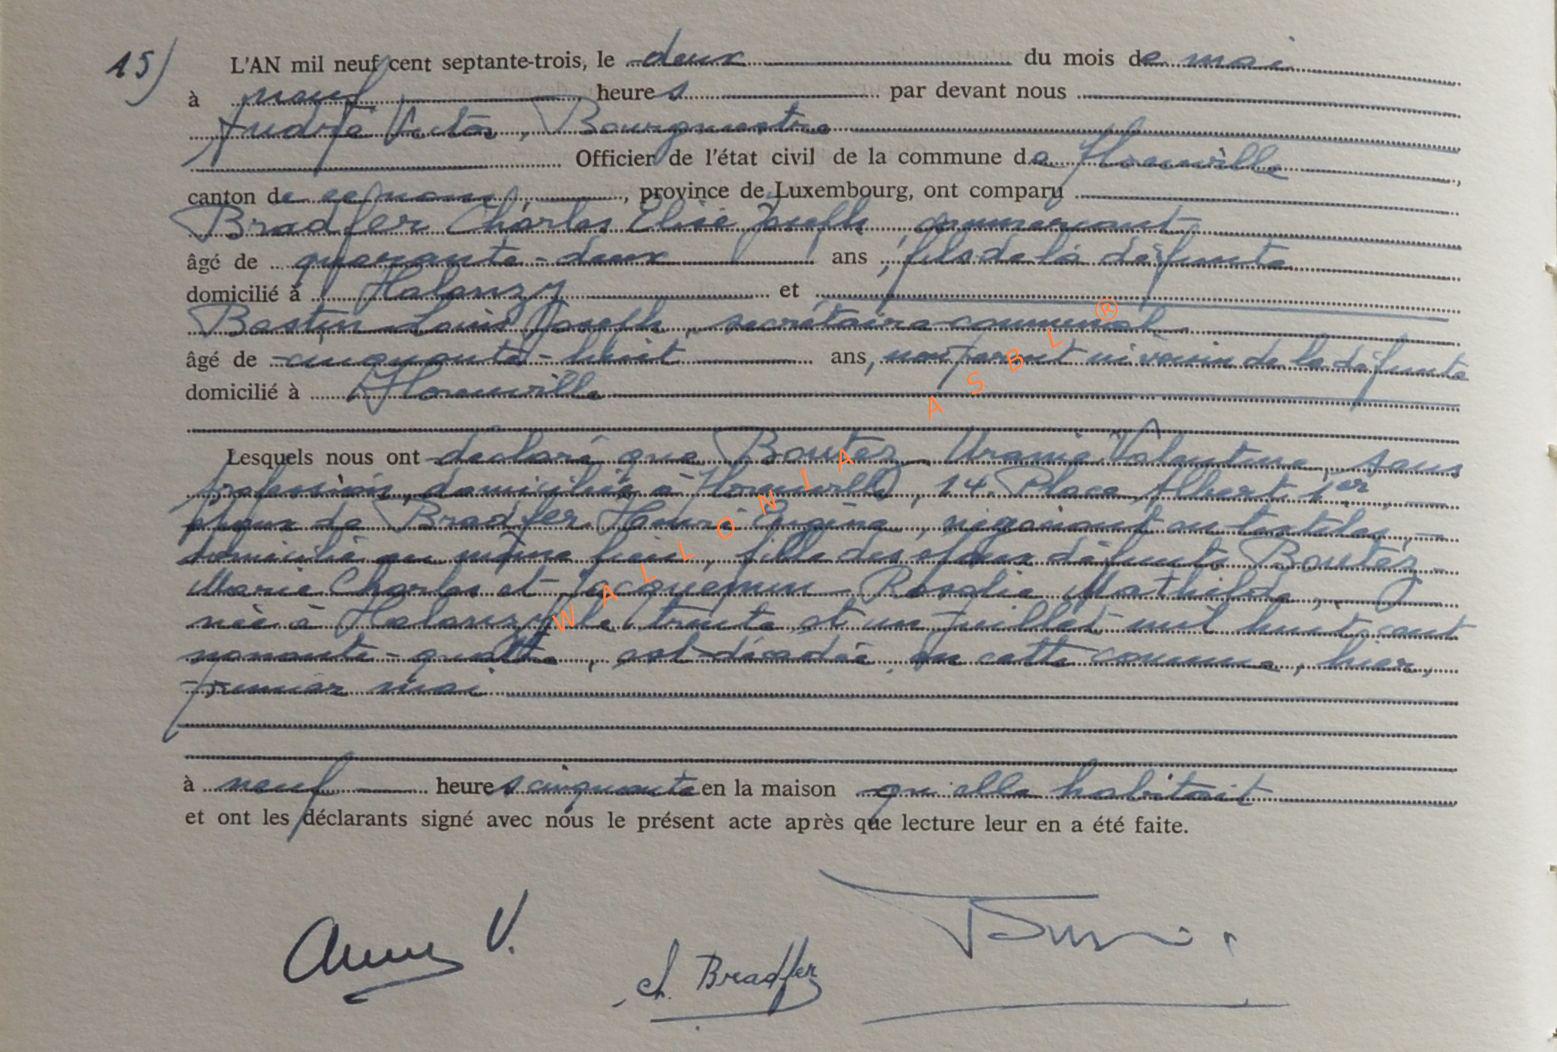 15) L'AN mil neuf cent septante-trois, le deux du mois de mai
à neuf heures par devant nous
André Victor, Bourgmestre
Officier de l'état civil de la commune de Florenville
canton de ce nom, province de Luxembourg, ont comparu
Bradfer Charles Elisé Joseph, commerçant
âgé de quarante-deux ans, fils de la défunte
domicilié à Halanzy et
Bastin Louis Joseph, secrétaire communal
âgé de cinquante-huit ans, non parent ni voisin de la défunte
domicilié à Florenville
Lesquels nous ont déclaré que Boutez, Uranie Valentine, sans
profession, domiciliée à Florenville, 14. Place Albert 1er,
époux de Bradfer Henri Eugène, négociant en textiles,
domicilié au même lieu, fille des époux défunts Boutez
Marie Charles et Jacquemin Rosalie Mathilde,
née à Halanzy le trente et un juillet mil huit cent
nonante-quatre, est décédée, en cette commune, hier,
premier mai
à neuf heures cinquante en la maison qu'elle habitait
et ont les déclarants signé avec nous le présent acte après que lecture leur en a été faite.
V. ch. Bradfer
WALLONIA ASBL ®